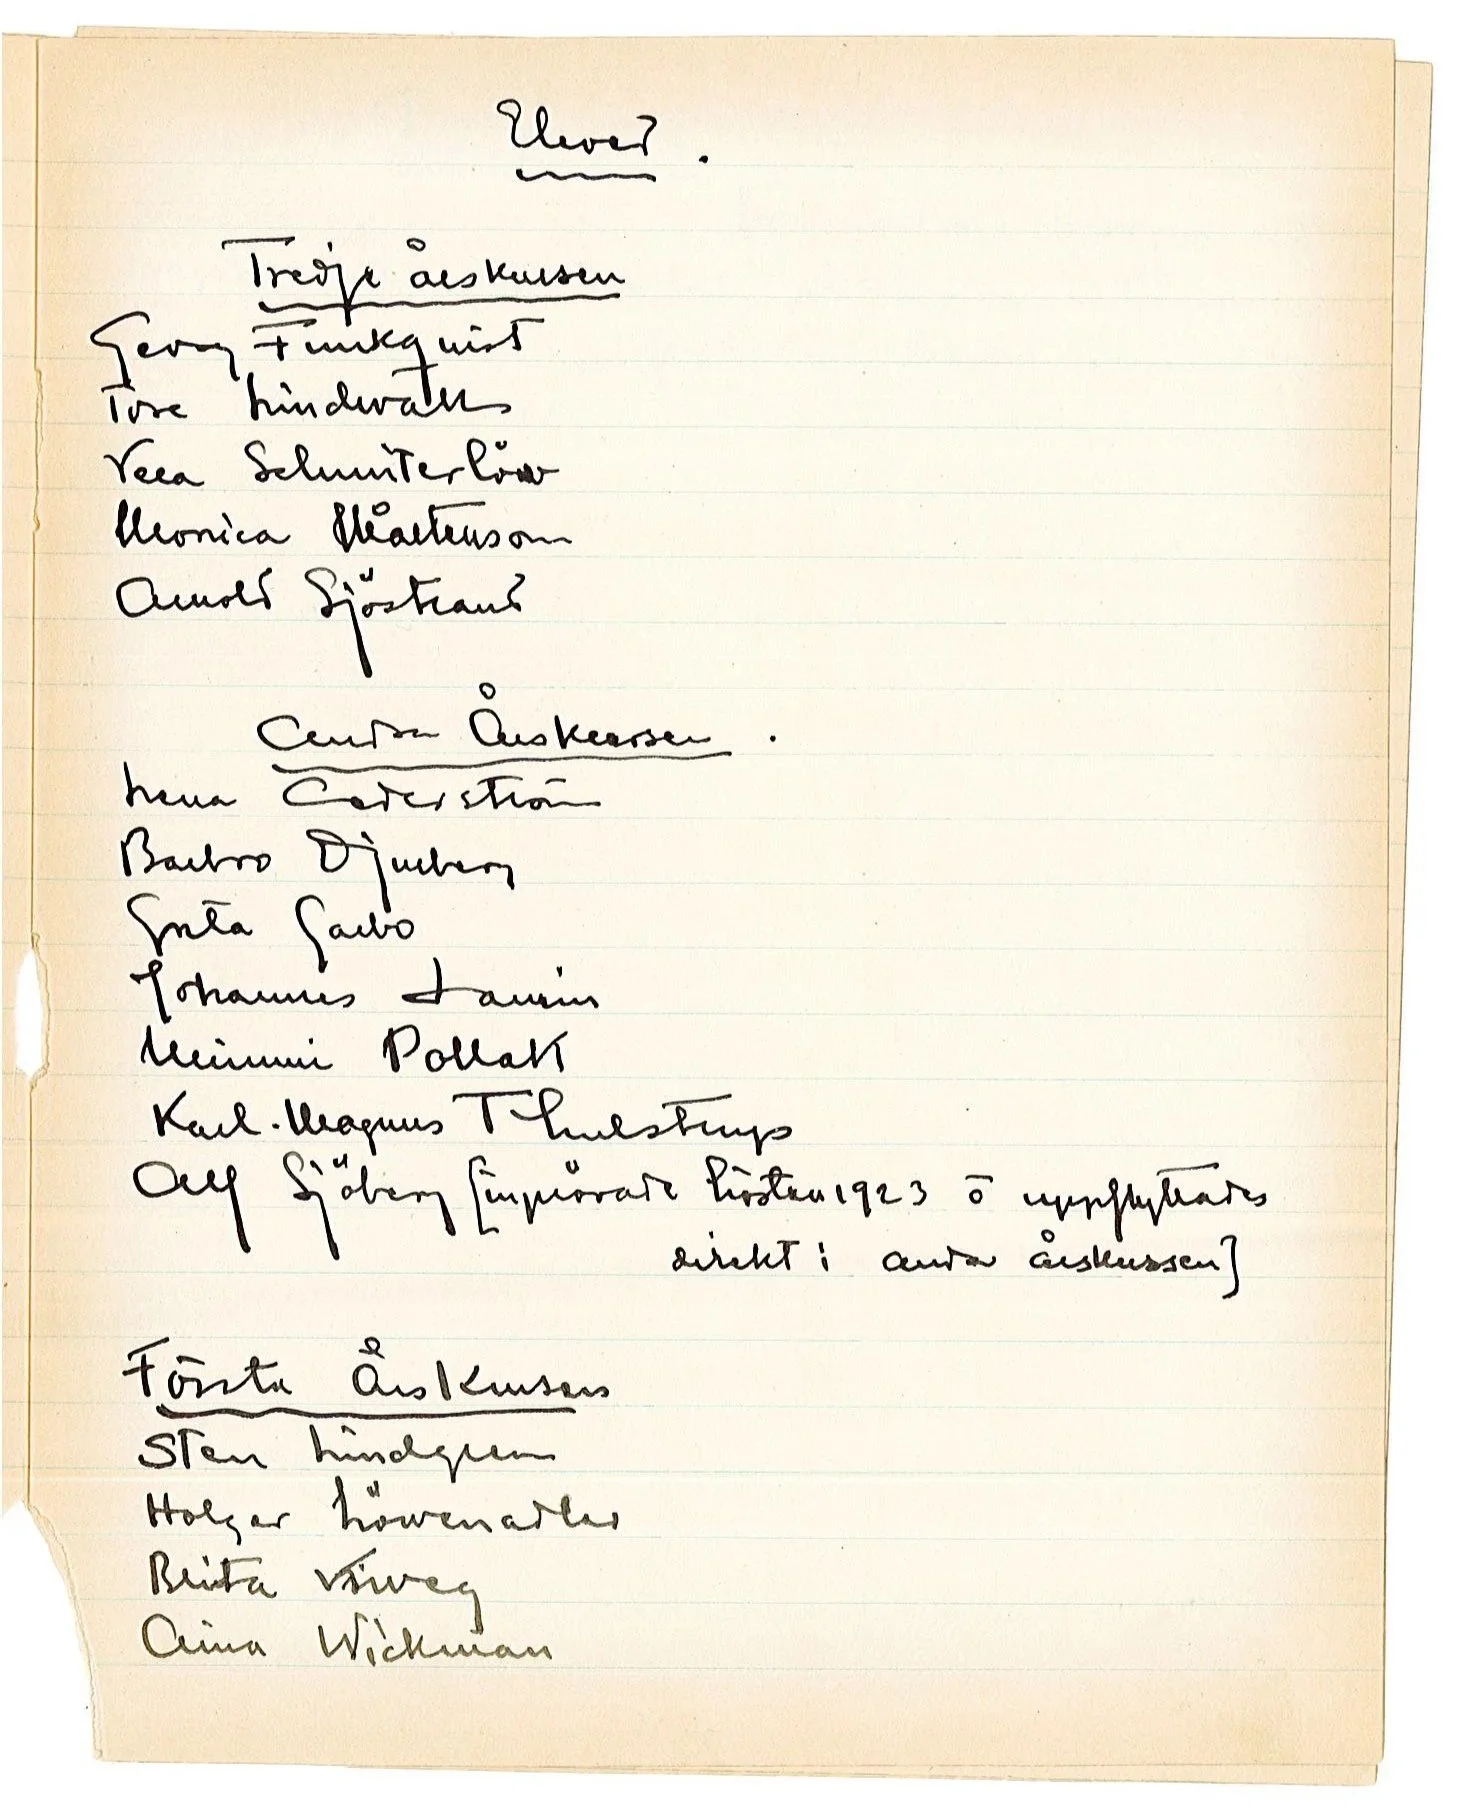 Elever.
Tredje årskursen
Georg Funkquist
Tore Lindwall
Vera Schmiterlöw
Monica Mårtenson
Arnold Sjöstrand
Andra Årskursen.
Lena Cederström
Barbro Djurberg
Greta Garbo
Johannes Laurin
Mimmi Pollak
Karl-Magnus Thulstrup
Alf Sjöberg [inprövade hösten 1923 o uppflyttades
direkt i andra årskursen]
Första Årskursen
Sten Lindgren
Holger Löwenadler
Brita
Aina Wickman